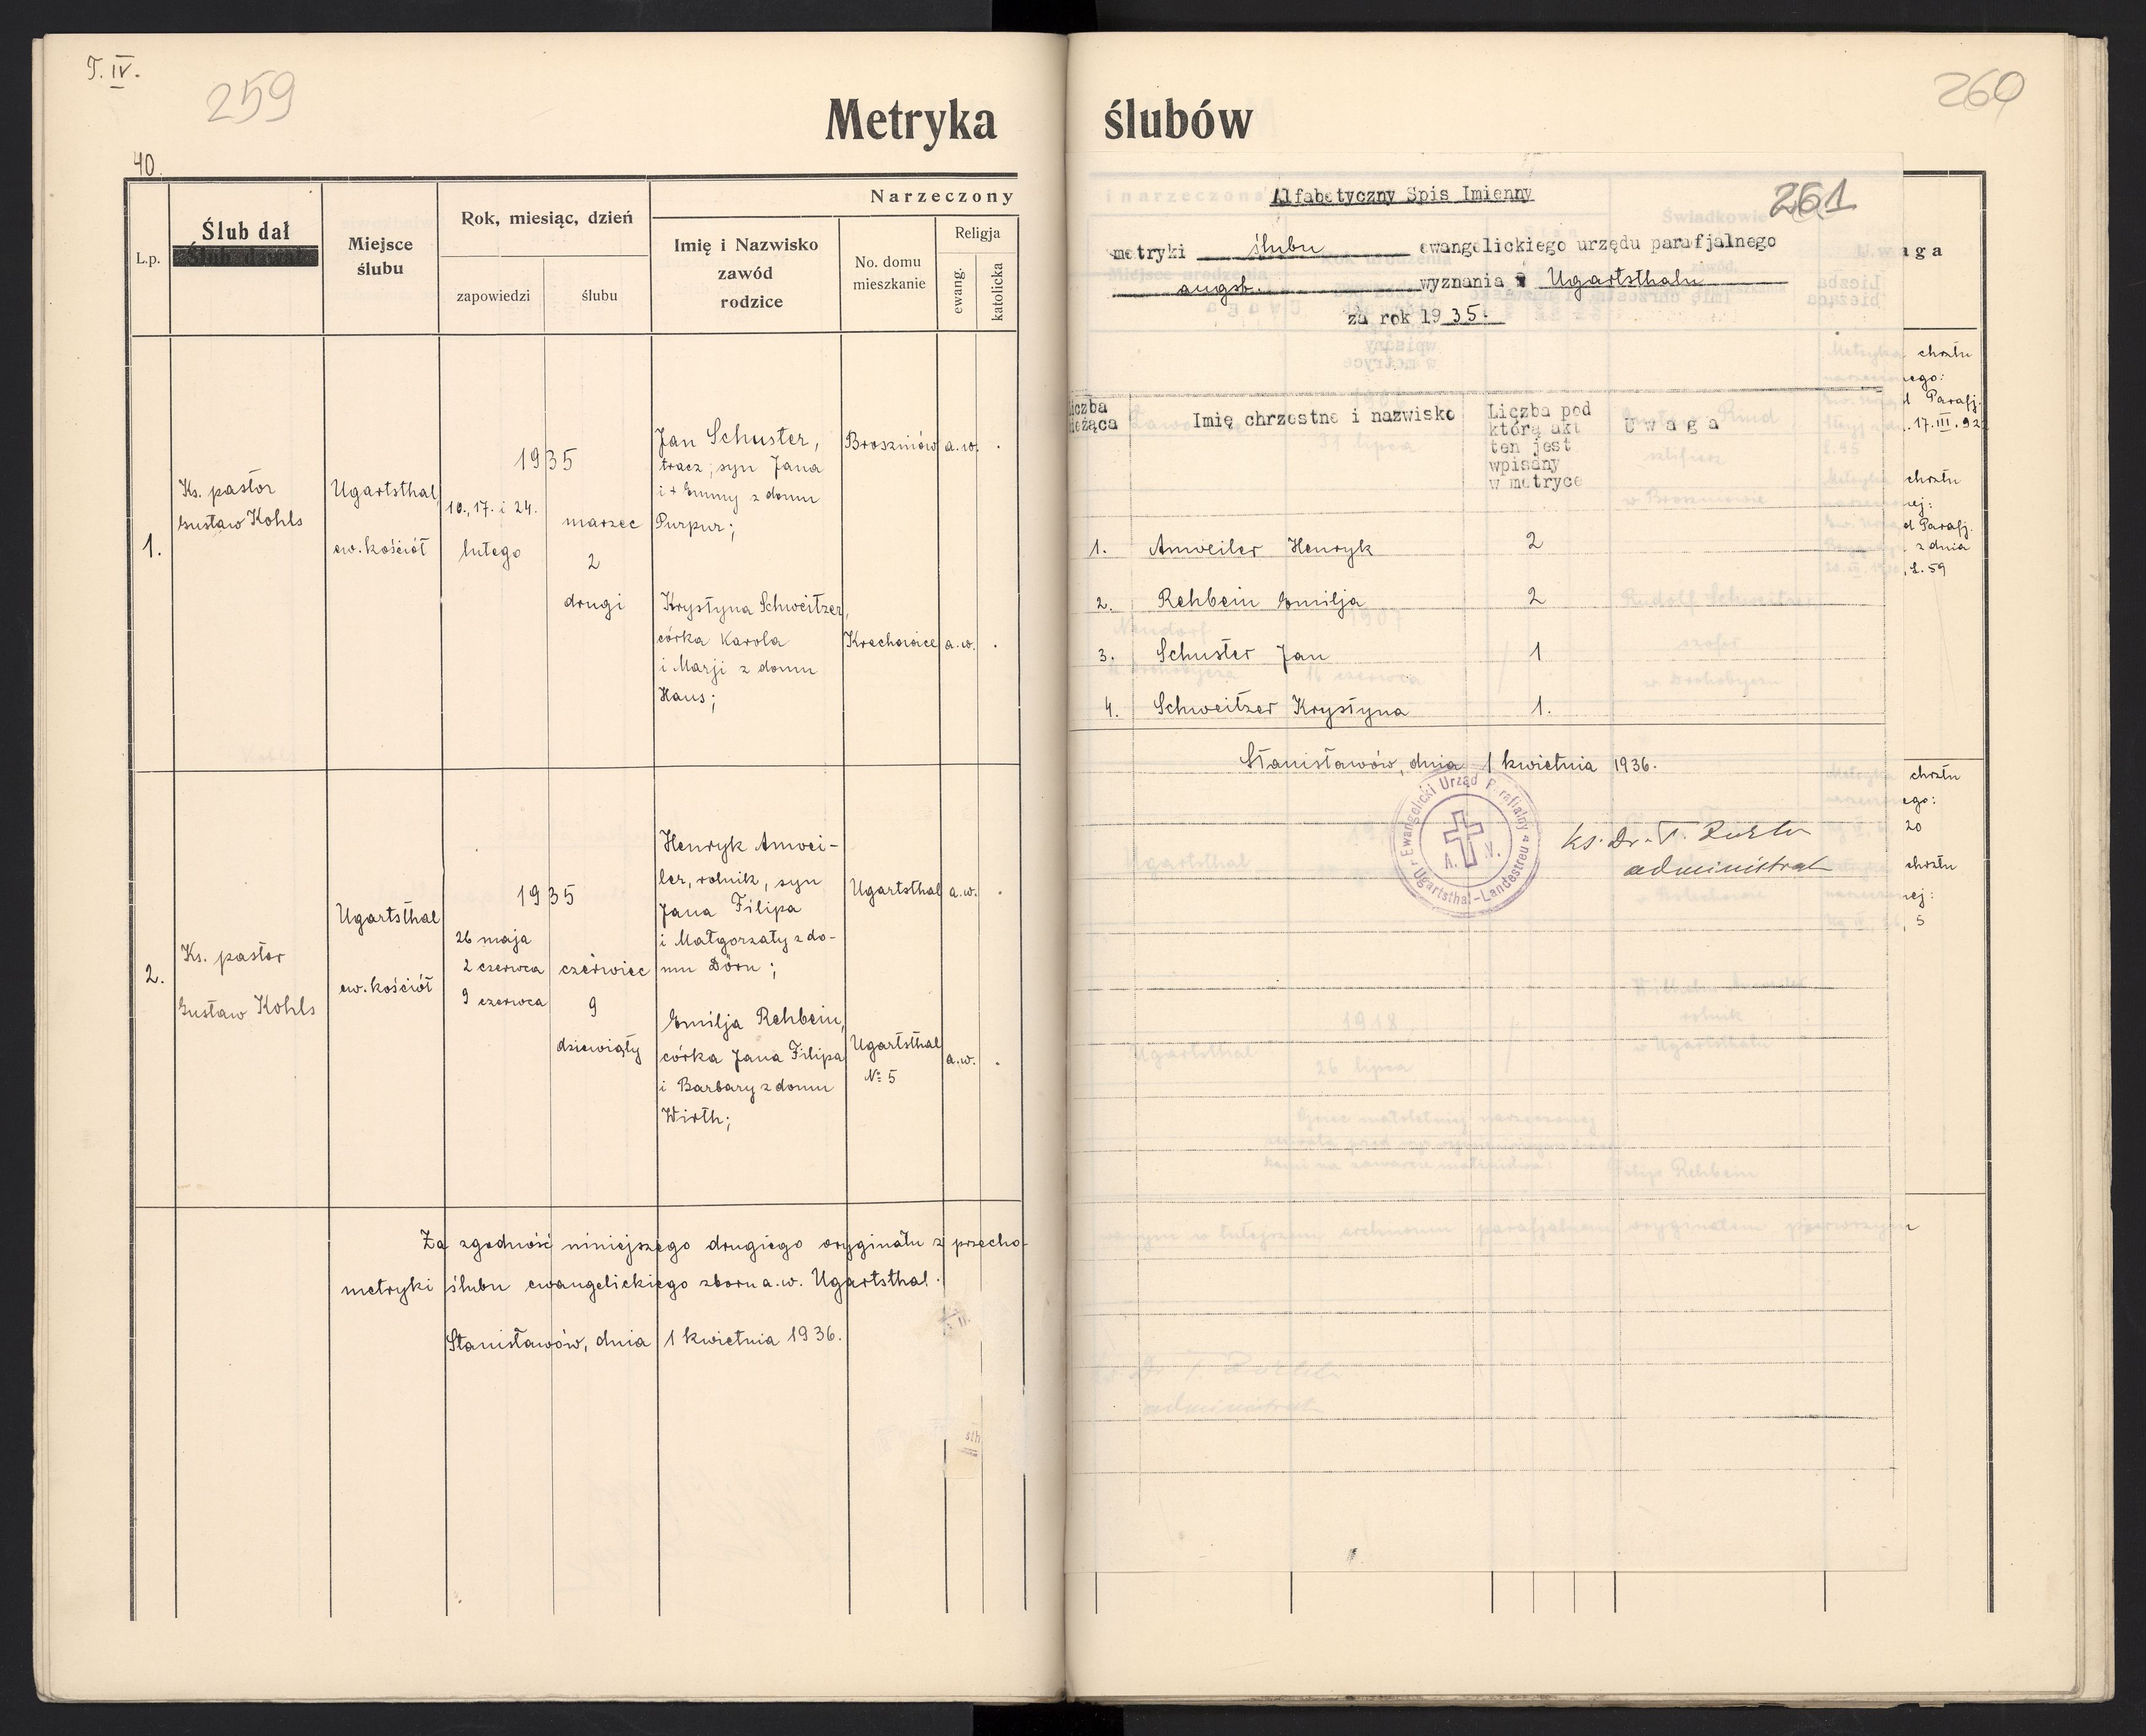 T. IV.
259
260
Metryka ślubów
40.
L.p.
Ślub dał
Miejsce
ślubu
Rok, miesiąc, dzień
zapowiedzi
ślubu
Narzeczony
Imię i Nazwisko
zawód
rodzice
No. domu
mieszkanie
Religja
ewang.
katolicka
1.
Ks. pastor
Gustaw Kohls
Ugartsthal
ew. kościół
1935
10., 17. i 24.
lutego
marzec
2
drugi
Jan Schuster,
tracz; syn Jana
i + Emmy z domu
Purpur;
Broszniów
a.w.
Krystyna Schweitzer,
córka Karola
i Marji z domu
Haus;
Krechowice
a.w.
2.
Ks. pastor
Gustaw Kohls
Ugartsthal
ew. kościół
1935
26 maja
2 czerwca
9 czerwca
czerwiec
9
dziewiąty
Henryk Anwei-
ler, rolnik, syn
Jana Filipa
i Małgorzaty z do-
mu Dörn;
Ugartsthal
a.w.
Emilja Rehbein,
córka Jana Filipa
i Barbary z domu
Wirth;
Ugartsthal
№ 5
a.w.
Za zgodność niniejszego drugiego oryginału z przecho-
metryki ślubu ewangelickiego zboru a.w. Ugartsthal.
Stanisławów, dnia 1 kwietnia 1936.
sth
Alfabetyczny Spis Imienny
261
metryki ślubu ewangelickiego urzędu parafjalnego
augsb. wyznania Ugartsthalu
za rok 1935.
liczba
ieżąca
Imię chrzestne i nazwisko
Liczba pod
którą akt
ten jest
wpisany
w metryce
Uwaga
1. Anweiler Henryk 2
2. Rehbein Emilja 2
3. Schuster Jan 1
4. Schweitzer Krystyna 1.
Stanisławów, dnia 1 kwietnia 1936.
Ewangelicki Urząd Parafialny
A. W.
Ugartsthal-Landestreu
ks. Dr. T.
administrat
aga
chrztu
ego:
d Parafj.
. 17. III. 92
chrztu
ej:
d Parafj.
z dnia
, L. 59
chrztu
ego:
20
chrztu
ej:
, 5